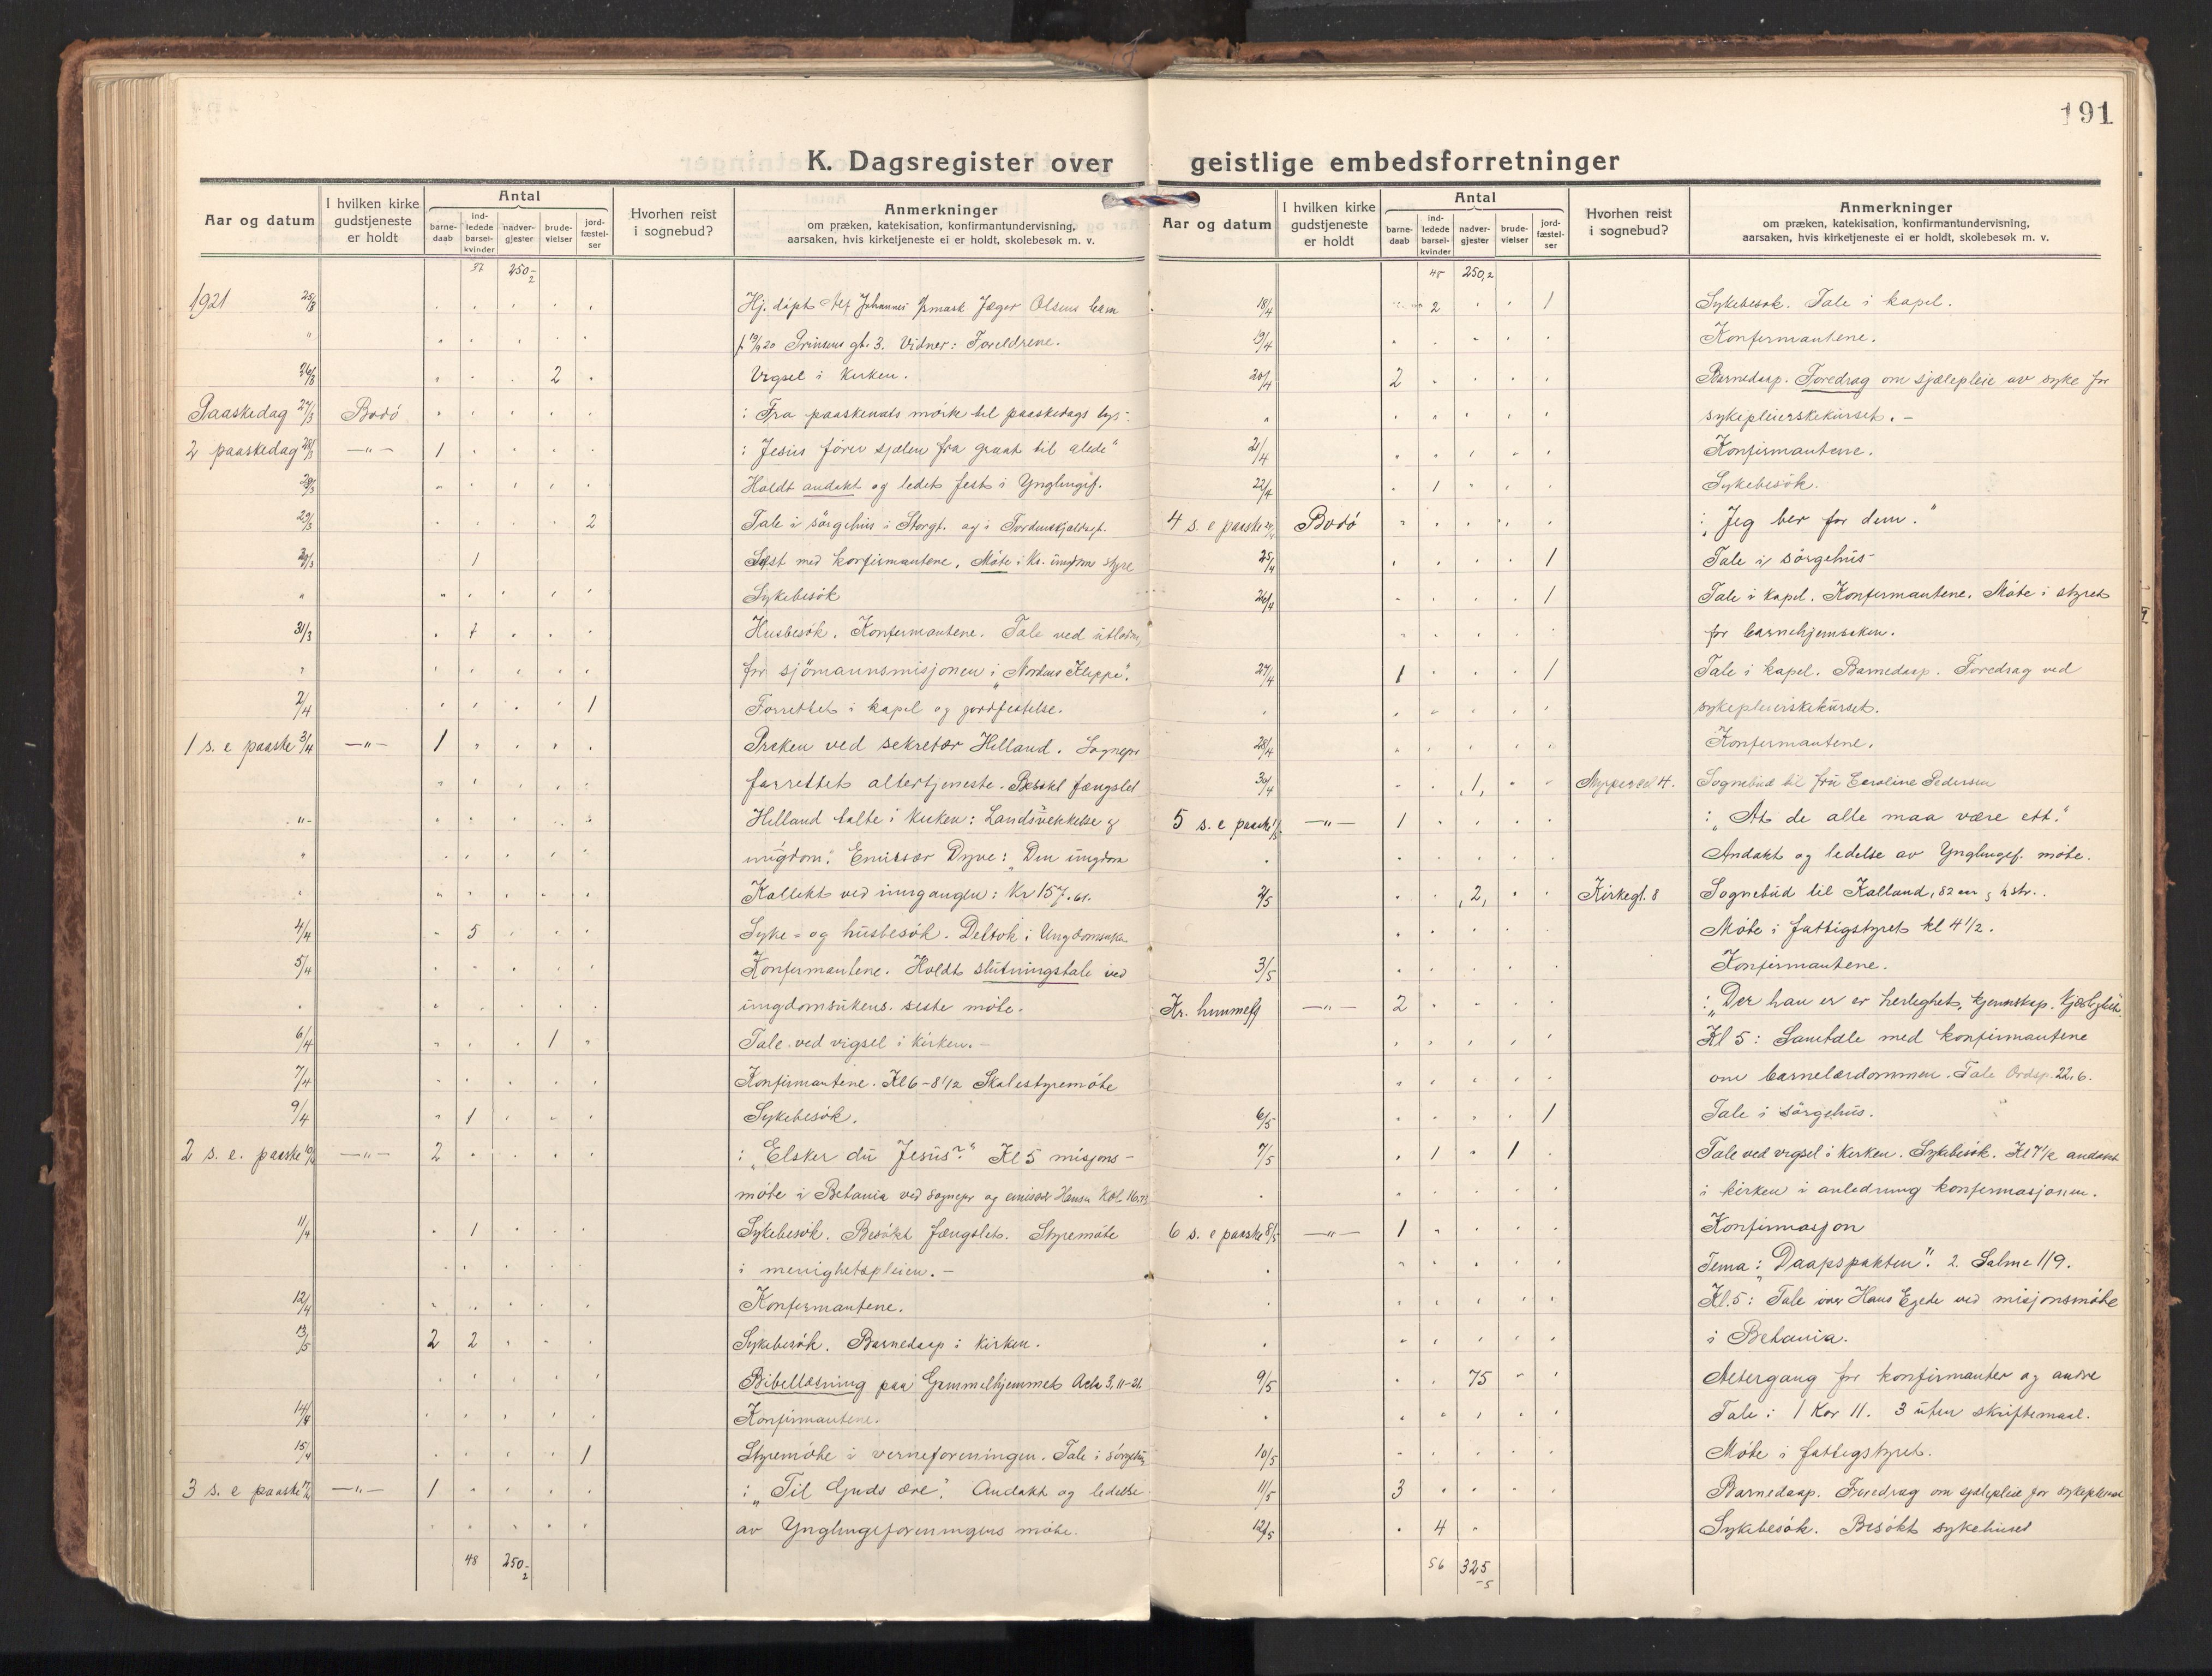 191
K. Dagsregister over geistlige embedsforretninger
Aar og datum
I hvilken kirke gudstjeneste er holdt
Antal
barne-daab
ind-ledede barsel-kvinder
nadver-gjester
brude-vielser
jord-fæstel-ser
Hvorhen reist i sognebud?
Anmerkninger
om præken, katekisation, konfirmantundervisning,
aarsaken, hvis kirketjeneste ei er holdt, skolebesøk m. v.
250 - 2
1921 25/3 Hj. døpt Alf Johannes Jæger Olsens barn
Prinsens gt. 3. Vidner: Foreldrene.
26/3 2 Vigsel i kirken.
Paaskedag 27/3 Bodö : Fra paaskenats mörk til paaskedags lys.
2 paaskedag 28/3 —"— 1 : Jesus förer sjælen fra graat til glede"
28/3 Holdt andakt og ledet fest i Ynglingef.
29/3 2 Tale i sörgehus i Storgt. og i Tordenskjoldsgt.
1 med konfirmantene. Möte i Kr. ungdoms styre
" Sykebesök
31/3 7 Husbesök. Konfirmantene. Tale ved
for sjömannsmisjonen i "Nordens Klippe".
2/4 1 Forrettet i kapel og jordfestelse.
1 s. e paaske 3/4 —"— 1 Preken ved sekretær Hilland. Sognepr
forrettet altertjeneste. Besökt fængslet
Hilland talte i kirken: Landsvekkelse og
ungdom". Emissær Dyve: "Den ungdom
Kollekt ved inngangen: Kr 157.61.
4/4 5 Syke- og husbesök. Deltok i Ungdomsuke
5/4 Konfirmantene. Holdt slutningstale ved
ungdomsukens siste möte.
6/4 1 Tale ved vigsel i kirken. -
7/4 Konfirmantene. Kl 6 - 8 1/2 Skolestyremöte
9/4 1 Sykebesök.
2 s. e. paaske 10/4 —"— 2 : "Elsker du Jesus?" Kl 5 misjons-
möte i Betania ved sognepr og emissær Hansen
11/4 1 Sykebesök. Besökt fængslet. Styremöte
i menighetspleien. -
12/4 Konfirmantene.
13/5 2 2 Sykebesök. Barnedaap i kirken.
Bibellæsning paa Gammelhjemmet Acta 3, 11-21.
14/4 Konfirmantene.
15/4 1 Styremöte i verneforeningen. Tale i sörgehus
3 s. e paaske 17/4 —"— 1 : "Til Guds ære". Andakt og ledelse
av Ynglingeforeningens möte.
48 250 - 2
Aar og datum
I hvilken kirke gudstjeneste er holdt
Antal
barne-daab
ind-ledede barsel-kvinder
nadver-gjester
brude-vielser
jord-fæstel-ser
Hvorhen reist i sognebud?
Anmerkninger
om præken, katekisation, konfirmantundervisning,
aarsaken, hvis kirketjeneste ei er holdt, skolebesøk m. v.
250,2
18/4 2 1 Sykebesök. Tale i kapel.
19/4 Konfirmantene.
20/4 2 Barnedaap. Foredrag om sjælepleie av syke for
" sykepleierskekurset. -
21/4 Konfirmantene.
22/4 1 Sykebesök.
4 s. e paaske 24/4 Bodö : "Jeg ber for dem."
25/4 1 Tale i sörgehus
26/4 1 Tale i kapel. Konfirmantene. Möte i styret
for barnehjemsaken.
27/4 1 1 Tale i kapel. Barnedaap. Foredrag ved
sykepleierskekurset.
28/4 Konfirmantene.
30/4 1 Sognebud til fru Caroline Pedersen
5 s. e paaske 1/5 —"— 1 : "At de alle maa være ett."
Andakt og ledelse av Ynglingef. möte.
2/5 2 Kirkegt. 8 Sognebud til Kalland, 82 aar
Möte i fattigstyret kl 4 1/2.
3/5 Konfirmantene.
Kr. himmelf —"— 2 : "Der han er er herlighet, kjennskap,
Kl 5: Samtale med konfirmantene
om barnelærdommen. Tale Ordsp. 22.6.
6/5 1 Tale i sörgehus.
7/5 1 1 Tale ved vigsel i kirken. Sykebesök. Kl 7 1/2 andakt
i kirken i anledning konfirmasjonen.
6 s. e paaske 8/5 —"— 1 Konfirmasjon
Tema: "Daapspakten". 2. Salme 119.
Kl. 5: Tale over Hans Egede ved misjonsmöte
i Betania.
9/5 75 Altergang for konfirmanter og andre
Tale: 1 Kor 11. 3 uten skriftemaal.
10/5 Möte i fattigstyret.
11/5 3 Barnedaap. Foredrag om sjælepleie for
12/5 4 Sykebesök. Besökt sykehuset
56 325 - 5